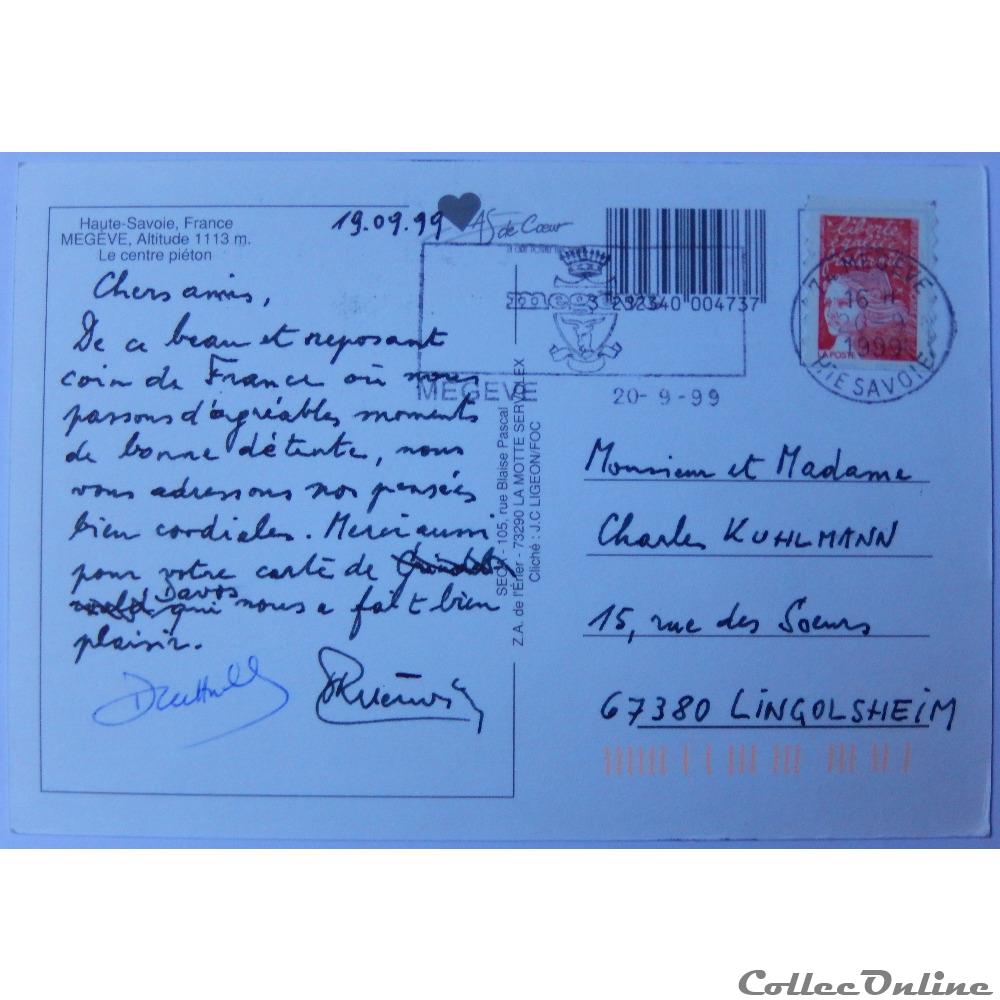 Haute-Savoie, France
MEGÈVE, Altitude 1113 m.
Le centre piéton
19.09.99
As de Cœur
3 292340 004737
MEGEVE
20-9-99
MEGEVE
16 H
20-9
1999
HTE SAVOIE
liberté
égalité
fraternité
LA POSTE
Chers amis,
De ce beau et reposant
coin de France où nous
passons d'agréables moments
de bonne détente, nous
vous adressons nos pensées
bien cordiales. Merci aussi
pour votre carte de
Davos
qui nous a fait bien
plaisir.
SECX - 105, rue Blaise Pascal
Z.A. de l'Erier - 73290 LA MOTTE SERVOLEX
Cliché : J.C LIGEON/FOC
Monsieur et Madame
Charles KUHLMANN
15, rue des Soeurs
67380 LINGOLSHEIM
CollecOnline